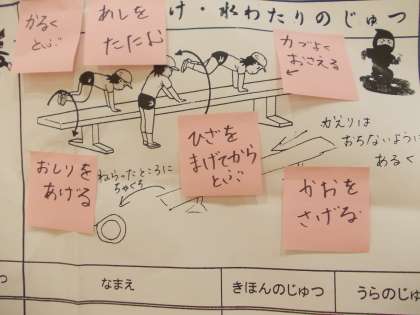 け・水わたりのじゅつ
かるく
とぶ
あしを
たたむ
力づよく
おさえる
ひざを
まげてから
とぶ
おしりを
あげる
ねらったところに
ちゃくち
かえりは
おちないように
あるく
かおを
さげる
なまえ
きほんのじゅつ
うらのじゅ